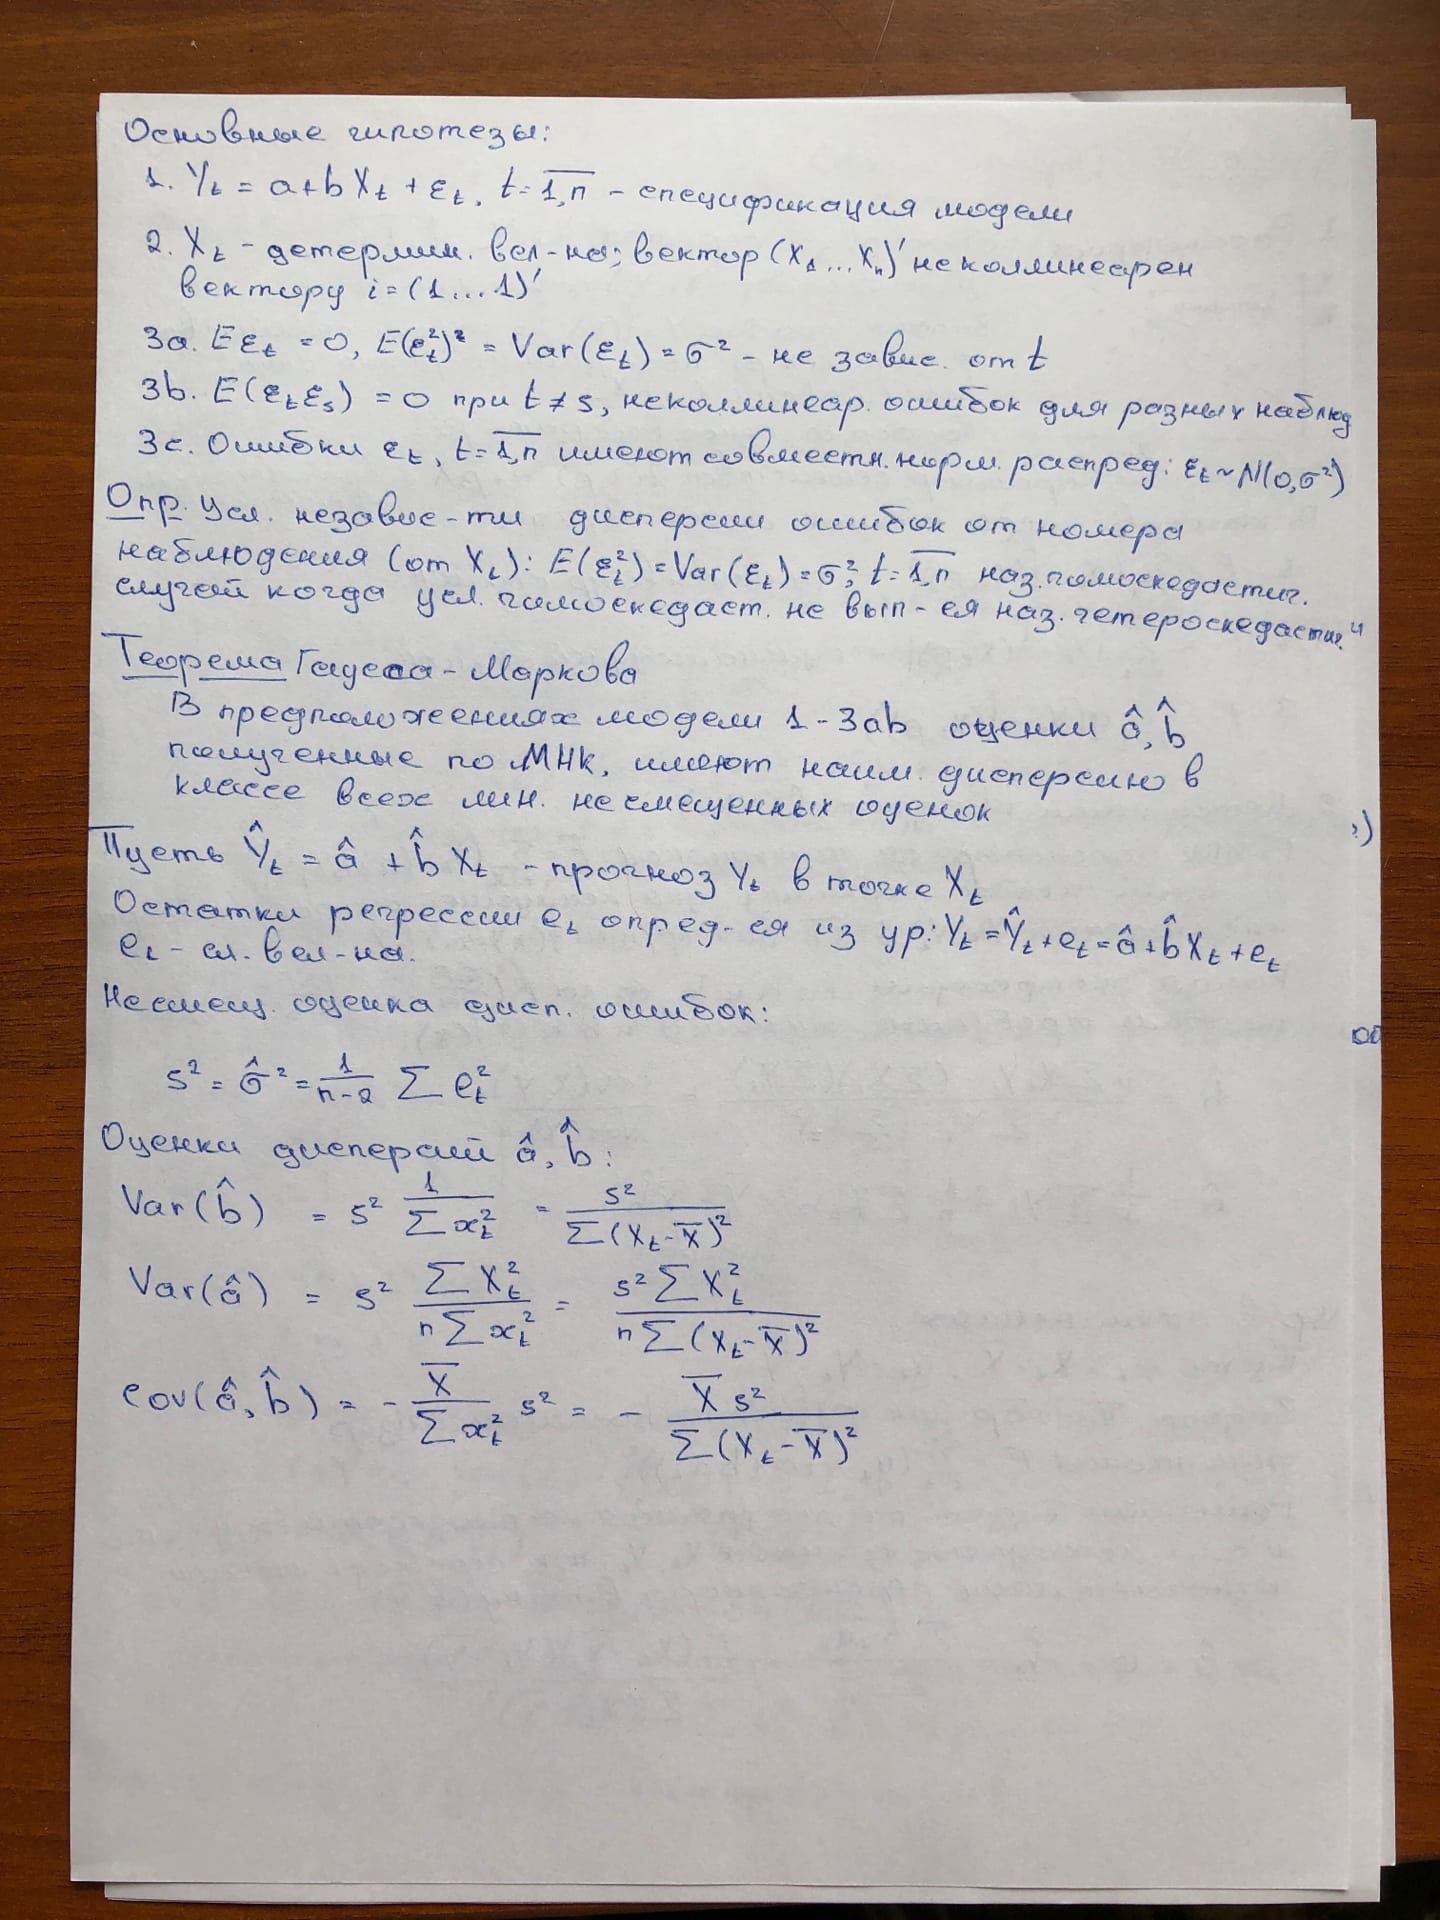 Основные гипотезы:
1. Yₜ = a+bXₜ + εₜ, t = 1,n̅ – спецификация модели
2. Xₜ – детермин. вел-на; вектор (X₁...Xₙ)' неколлинеарен
вектору i = (1...1)'
3a. Eεₜ = 0, E(εₜ²)² = Var(εₜ) = σ² – не завис. от t
3b. E(εₜεₛ) = 0 при t ≠ s, неколлинеар. ошибок для разных наблюд
3c. Ошибки εₜ, t = 1,n̅ имеют совместн. норм. распред: εₜ ~ N(0,σ²)
Опр. Усл. независ-ти дисперсии ошибок от номера
наблюдения (от Xₜ): E(εₜ²) = Var(εₜ) = σ², t = 1,n̅ наз. гомоскедастич.
случай когда усл. гомоскедаст. не вып-ся наз. гетероскедастич.
Теорема Гаусса-Маркова
В предположениях модели 1-3ab оценки â, b̂
полученные по МНК, имеют наим. дисперсию в
классе всех лин. несмещенных оценок
Пусть Ŷₜ = â + b̂Xₜ – прогноз Yₜ в точке Xₜ
Остатки регрессии eₜ опред-ся из ур: Yₜ = Ŷₜ + eₜ = â + b̂Xₜ + eₜ
eₜ – сл. вел-на.
Несмещ. оценка дисп. ошибок:
s² = σ̂² = 1/(n-2) Σ eₜ²
Оценки дисперсий â, b̂:
Var(b̂) = s² 1/(Σxₜ²) = s²/(Σ(Xₜ-X̅)²)
Var(â) = s² ΣXₜ²/(nΣxₜ²) = s²ΣXₜ²/(nΣ(Xₜ-X̅)²)
cov(â, b̂) = - X̅/(Σxₜ²) s² = - X̅s²/(Σ(Xₜ-X̅)²)